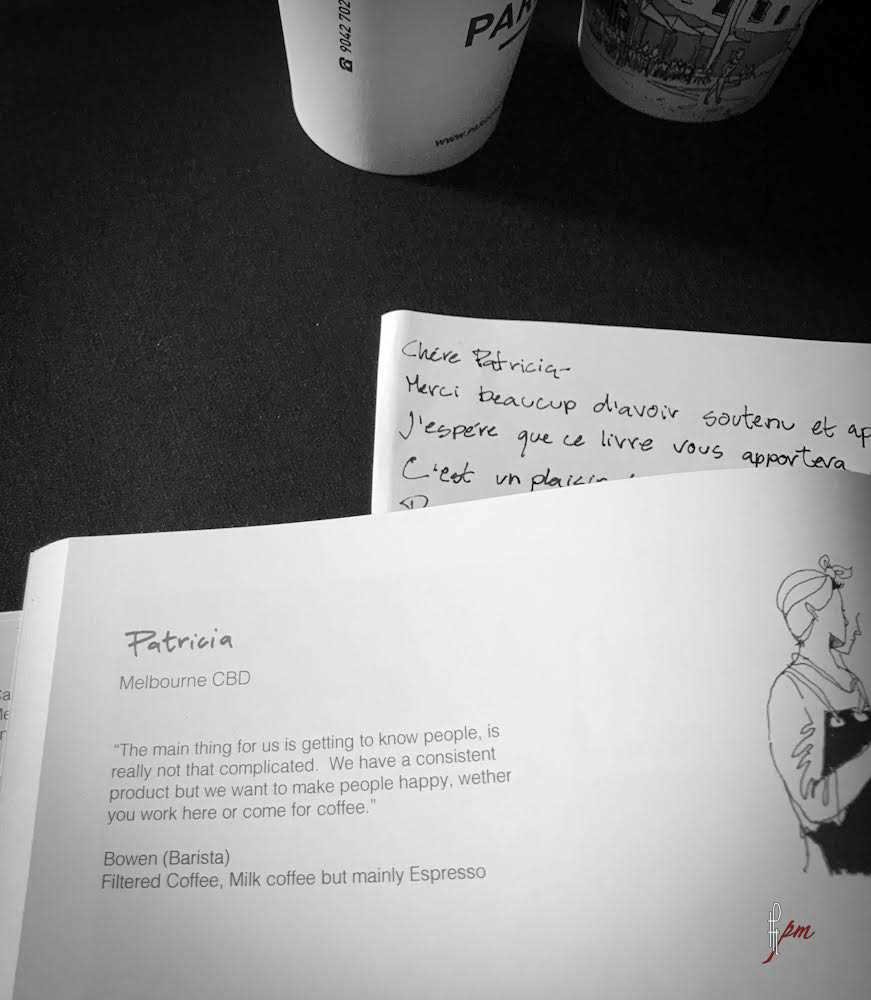 9042 702
PAR
www.PAR
Chére Patricia-
Merci beaucup d'avoir soutenu et ap
J'espère que ce livre vous apportera
C'est un plaisir
Patricia
Melbourne CBD
“The main thing for us is getting to know people, is
really not that complicated. We have a consistent
product but we want to make people happy, wether
you work here or come for coffee.”
Bowen (Barista)
Filtered Coffee, Milk coffee but mainly Espresso
pm